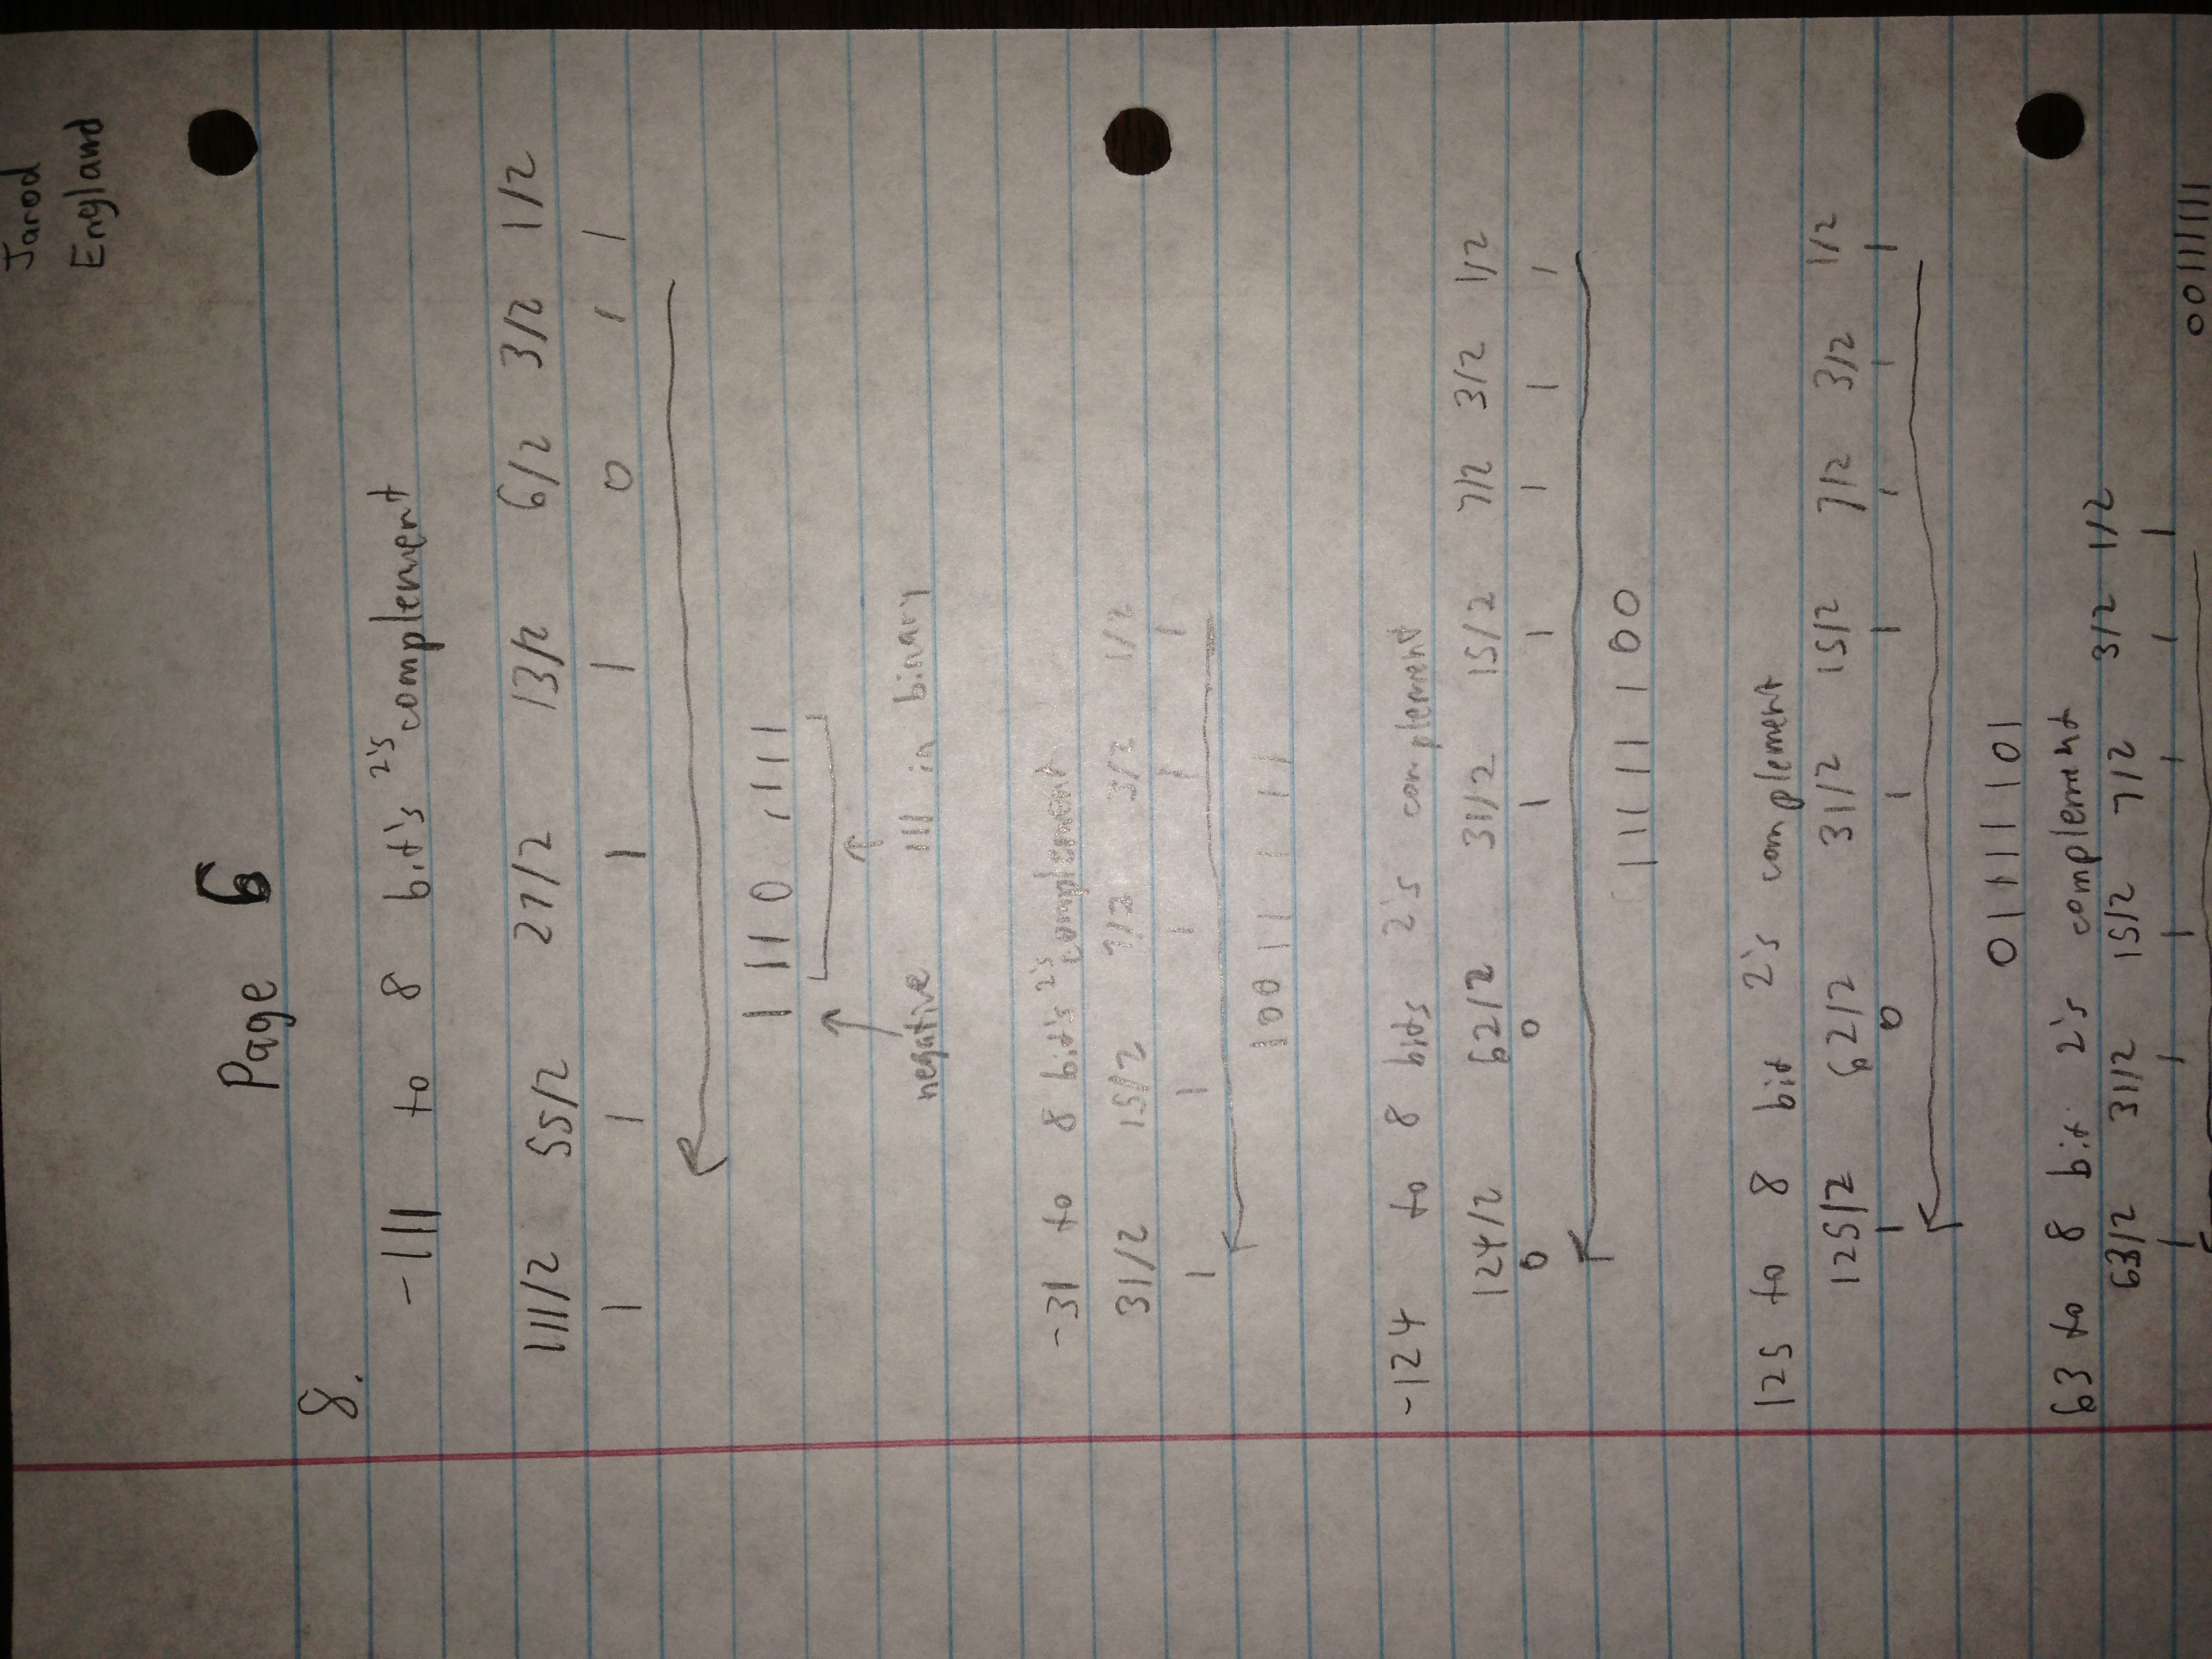 Jarod
England
Page 6
8.
-111 to 8 bit's 2's complement
111/2 55/2 27/2 13/2 6/2 3/2 1/2
1 1 1 1 0 1 1
1 110 1111
negative 111 in binary
-31 to 8 bit's 2's complement
31/2 15/2 7/2 3/2 1/2
1 1 1 1 1
10011111
-124 to 8 bits 2's complement
124/2 62/2 31/2 15/2 7/2 3/2 1/2
0 0 1 1 1 1 1
11111100
125 to 8 bit 2's complement
125/2 62/2 31/2 15/2 7/2 3/2 1/2
1 0 1 1 1 1 1
01111101
63 to 8 bit 2's complement
63/2 31/2 15/2 7/2 3/2 1/2
1 1 1 1 1 1
00111111